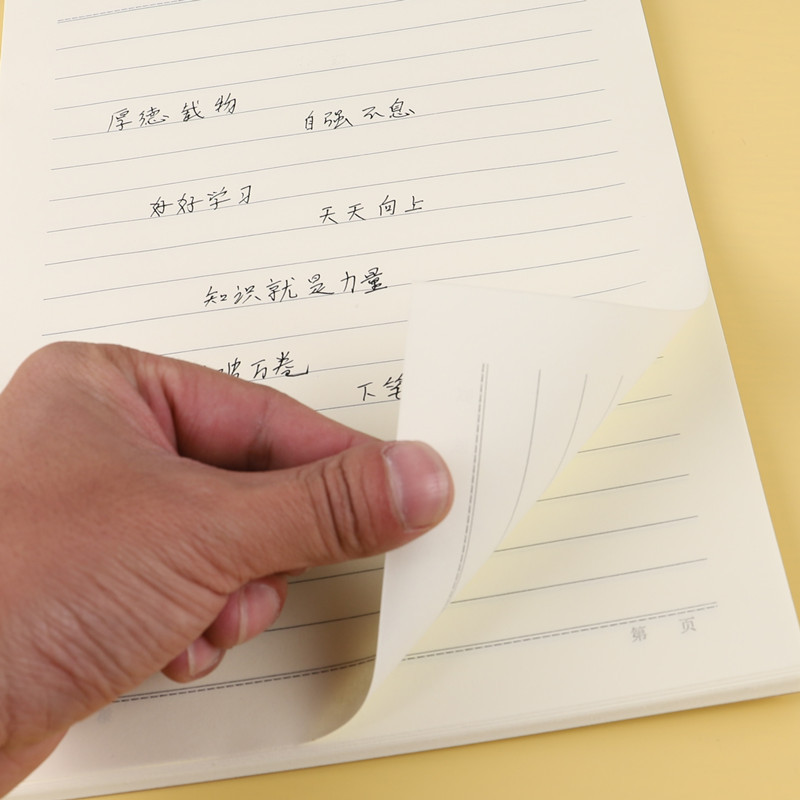 厚德载物 自强不息
好好学习 天天向上
知识就是力量
破万卷
下笔
第 页